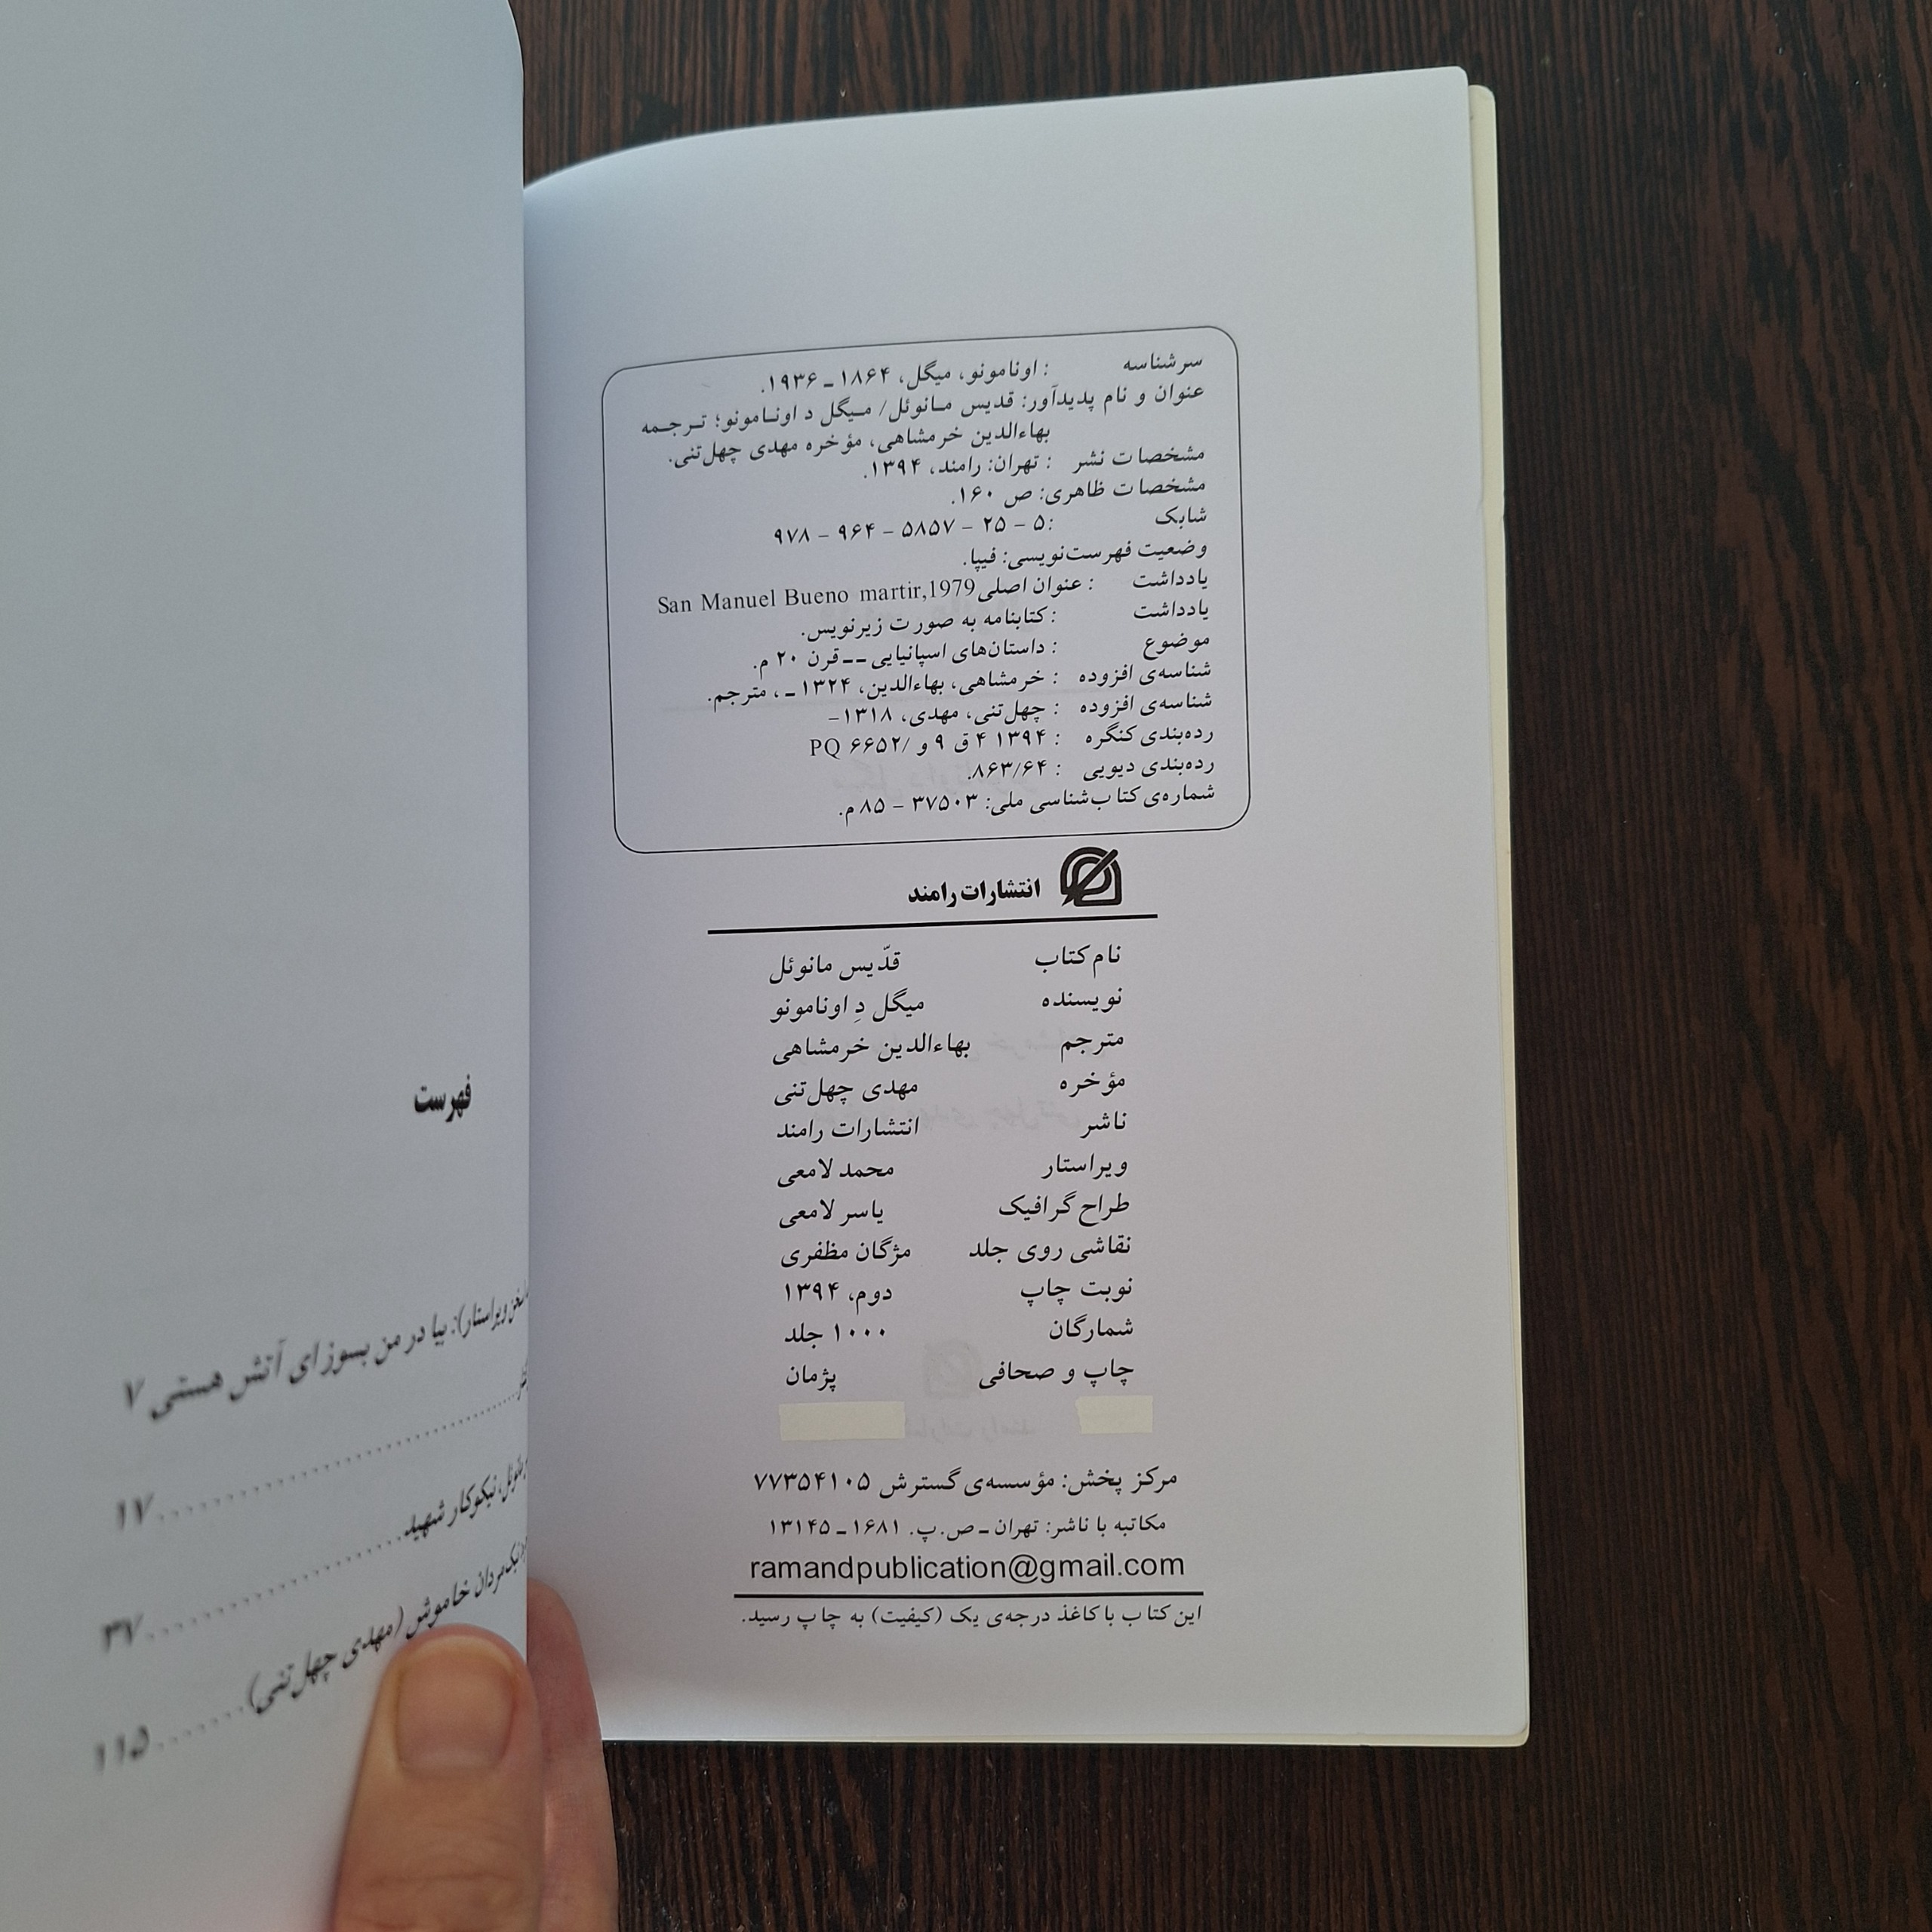 سرشناسه : اونامونو، میگل، ۱۸۶۴ ـ ۱۹۳۶.
عنوان و نام پدیدآور: قدیس مـانوئل/ مـیگل د اونـامونو؛ تـرجـمه
بهاءالدین خرمشاهی، مؤخره مهدی چهل‌تنی.
مشخصات نشر : تهران: رامند، ۱۳۹۴.
مشخصات ظاهری: ص ۱۶۰.
شابک :۵ – ۲۵ – ۵۸۵۷ – ۹۶۴ – ۹۷۸
وضعیت فهرست‌نویسی: فیپا.
یادداشت : عنوان اصلی San Manuel Bueno martir,1979
یادداشت : کتابنامه به صورت زیرنویس.
موضوع : داستان‌های اسپانیایی ــ قرن ۲۰ م.
شناسه‌ی افزوده : خرمشاهی، بهاءالدین، ۱۳۲۴ ـ ، مترجم.
شناسه‌ی افزوده : چهل‌تنی، مهدی، ۱۳۱۸–
رده‌بندی کنگره : ۱۳۹۴ ۴ ق ۹ و /PQ ۶۶۵۲
رده‌بندی دیویی : ۸۶۳/۶۴.
شماره‌ی کتاب‌شناسی ملی: ۳۷۵۰۳ – ۸۵ م.
انتشارات رامند
نام کتاب قدّیس مانوئل
نویسنده میگل دِ اونامونو
مترجم بهاءالدین خرمشاهی
مؤخره مهدی چهل‌تنی
ناشر انتشارات رامند
ویراستار محمد لامعی
طراح گرافیک یاسر لامعی
نقاشی روی جلد مژگان مظفری
نوبت چاپ دوم، ۱۳۹۴
شمارگان ۱۰۰۰ جلد
چاپ و صحافی پژمان
مرکز پخش: مؤسسه‌ی گسترش ۷۷۳۵۴۱۰۵
مکاتبه با ناشر: تهران ـ ص.پ. ۱۶۸۱ ـ ۱۳۱۴۵
ramandpublication@gmail.com
این کتاب با کاغذ درجه‌ی یک (کیفیت) به چاپ رسید.
فهرست
ویراستار): بیا در من بسوز ای آتش هستی ۷
۱۷
نیکوکار شهید ۳۷
نیک‌مردان خاموش (مهدی چهل‌تنی) ۱۱۵